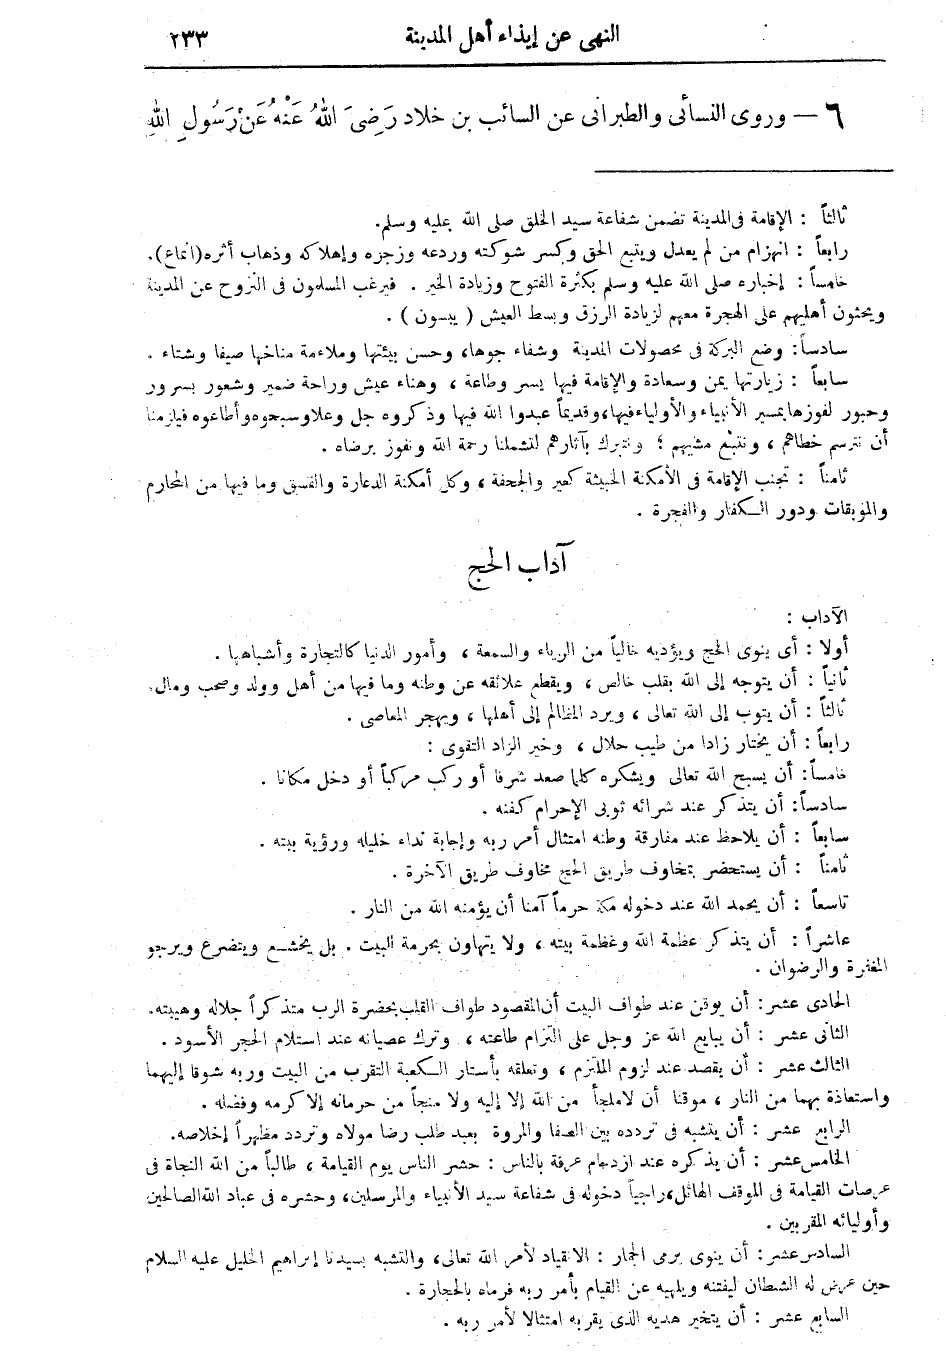 النهى عن إيذاء أهل المدينة ٢٣٣
٦ — وروى النسائى والطبرانى عن السائب بن خلاد رَضِىَ اللهُ عَنْهُ عَنْ رَسُولِ اللهِ
ثالثاً : الإقامة فى المدينة تضمن شفاعة سيد الخلق صلى الله عليه وسلم.
رابعاً : انهزام من لم يعدل ويتبع الحق وكسر شوكته وردعه وزجره وإهلاكه وذهاب أثره (انماع).
خامساً : إخباره صلى الله عليه وسلم بكثرة الفتوح وزيادة الخير . فيرغب المسلمون فى النزوح عن المدينة
ويحثون أهليهم على الهجرة معهم لزيادة الرزق وبسط العيش ( يبسون ) .
سادساً: وضع البركة فى محصولات المدينة وشفاء جوها، وحسن بيئتها وملاءمة مناخها صيفا وشتاء .
سابعاً : زيارتها يمن وسعادة والإقامة فيها يسر وطاعة ، وهناء عيش وراحة ضمير وشعور بسرور
وحبور لفوزها بمسير الأنبياء والأولياء فيها، وقديماً عبدوا الله فيها وذكروه جل وعلا وسبحوه وأطاعوه فيلزمنا
أن نترسم خطاهم ، ونتبع مشيهم ؛ ونتبرك بآثارهم لتشملنا رحمة الله ونفوز برضاه .
ثامناً : تجنب الإقامة فى الأمكنة الخبيثة كعير والجحفة ، وكل أمكنة الدعارة والفسق وما فيها من المحارم
والموبقات ودور الكفار والفجرة .
آداب الحج
الآداب :
أولا : أى ينوى الحج ويؤديه خالياً من الرياء والسمعة ، وأمور الدنيا كالتجارة وأشباهها .
ثانياً : أن يتوجه إلى الله بقلب خالص ، ويقطع علائقه عن وطنه وما فيها من أهل وولد وصحب ومال.
ثالثاً : أن يتوب إلى الله تعالى ، ويرد المظالم إلى أهلها ، ويهجر المعاصى .
رابعاً : أن يختار زادا من طيب حلال ، وخير الزاد التقوى :
خامساً: أن يسبح الله تعالى ويشكره كلما صعد شرفا أو ركب مركباً أو دخل مكانا .
سادساً: أن يتذكر عند شرائه ثوبى الإحرام كفنه .
سابعاً : أن يلاحظ عند مفارقة وطنه امتثال أمر ربه وإجابة نداء خليله ورؤية بيته .
ثامناً : أن يستحضر بمخاوف طريق الحج مخاوف طريق الآخرة .
تاسعاً : أن يحمد الله عند دخوله مكة حرماً آمنا أن يؤمنه الله من النار .
عاشراً : أن يتذكر عظمة الله وعظمة بيته ، ولا يتهاون بحرمة البيت . بل يخشع ويتضرع ويرجو
المغفرة والرضوان .
الحادى عشر: أن يوقن عند طواف البيت أن المقصود طواف القلب بحضرة الرب متذكراً جلاله وهيبته.
الثانى عشر : أن يبايع الله عز وجل على التزام طاعته ، وترك عصيانه عند استلام الحجر الأسود .
الثالث عشر : أن يقصد عند لزوم الملتزم ، وتعلقه بأستار الكعبة التقرب من البيت وربه شوقا إليهما
واستعاذة بهما من النار ، موقنا أن لا ملجأ من الله إلا إليه ولا منجأ من حرمانه إلا كرمه وفضله .
الرابع عشر : أن يتشبه فى تردده بين الصفا والمروة بعبد طلب رضا مولاه وتردد مظهراً إخلاصه.
الخامس عشر : أن يذكره عند ازدحام عرفة بالناس : حشر الناس يوم القيامة ، طالباً من الله النجاة فى
عرصات القيامة فى الموقف الهائل، راجياً دخوله فى شفاعة سيد الأنبياء والمرسلين، وحشره فى عباد الله الصالحين
وأوليائه المقربين .
السادس عشر: أن ينوى برمى الجمار : الانقياد لأمر الله تعالى، والتشبه بسيدنا إبراهيم الخليل عليه السلام
حين عرض له الشطان ليفتنه ويلهيه عن القيام بأمر ربه فرماه بالحجارة .
السابع عشر : أن يتخير هديه الذى يقربه امتثالا لأمر ربه .